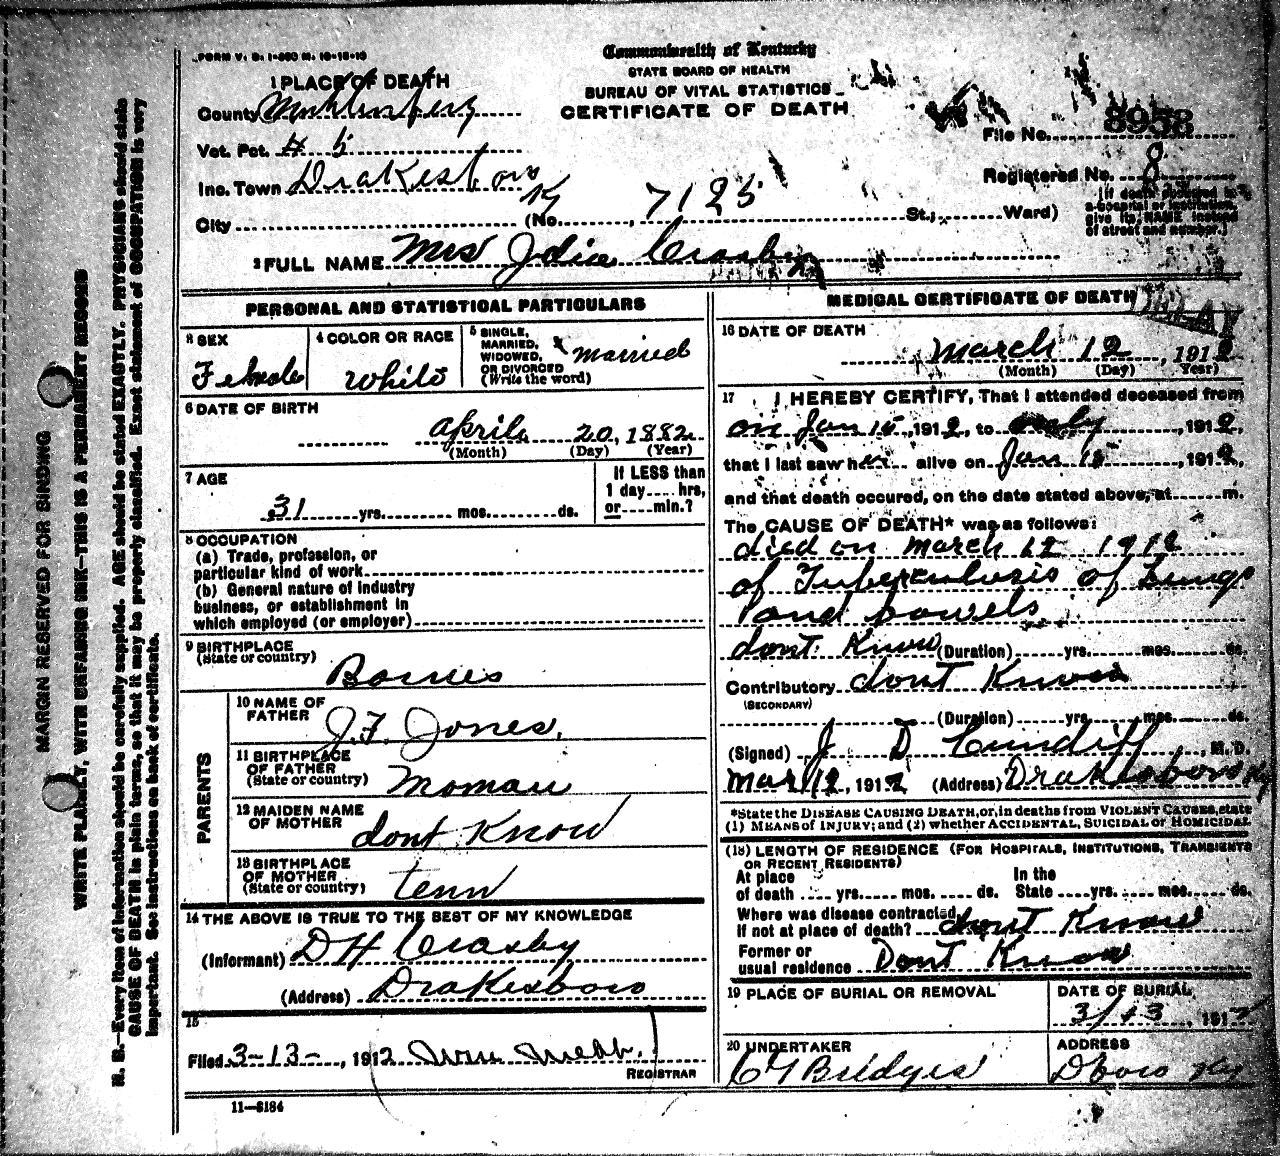 FORM V. S. 1-250 M. 10-18-10
Commonwealth of Kentucky
STATE BOARD OF HEALTH
BUREAU OF VITAL STATISTICS
CERTIFICATE OF DEATH
1 PLACE OF DEATH
County Muhlenberg
Vot. Pct. # 5
Inc. Town Drakesboro Ky
City (No. 7125 St.; Ward)
File No. 8958
Registered No. 8
(If death occurred in
a hospital or institution,
give its NAME instead
of street and number.)
2 FULL NAME Mrs Crasby
PERSONAL AND STATISTICAL PARTICULARS
3 SEX
Female
4 COLOR OR RACE
White
5 SINGLE,
MARRIED,
WIDOWED,
OR DIVORCED
(Write the word)
x married
6 DATE OF BIRTH
April 20, 1882
(Month) (Day) (Year)
7 AGE
31 yrs. mos. ds.
If LESS than
1 day hrs,
or min.?
8 OCCUPATION
(a) Trade, profession, or
particular kind of work
(b) General nature of industry
business, or establishment in
which employed (or employer)
9 BIRTHPLACE
(State or country)
PARENTS
10 NAME OF
FATHER
J. F. Jones.
11 BIRTHPLACE
OF FATHER
(State or country)
12 MAIDEN NAME
OF MOTHER
dont Know
13 BIRTHPLACE
OF MOTHER
(State or country)
tenn
14 THE ABOVE IS TRUE TO THE BEST OF MY KNOWLEDGE
(Informant) D H Crasby
(Address) Drakesboro
15
Filed 3-13-, 1912
REGISTRAR
11-8184
MEDICAL CERTIFICATE OF DEATH
16 DATE OF DEATH
March 12, 1912
(Month) (Day) Year)
17 I HEREBY CERTIFY, That I attended deceased from
on Jan 15, 1912, to only, 1912,
that I last saw her alive on Jan 15, 1912,
and that death occured, on the date stated above, at m.
The CAUSE OF DEATH* was as follows:
died on March 12 1912
of Tuberculosis of Lungs
and bowels
dont Know (Duration) yrs. mos. ds.
Contributory dont Know
(SECONDARY)
(Duration) yrs. mos. ds.
(Signed) J D Cundiff, M. D.
Mar 12, 1912 (Address) Drakesboro Ky
*State the DISEASE CAUSING DEATH, or, in deaths from VIOLENT CAUSES, state
(1) MEANS of INJURY; and (2) whether ACCIDENTAL, SUICIDAL or HOMICIDAL
(18) LENGTH OF RESIDENCE (FOR HOSPITALS, INSTITUTIONS, TRANSIENTS
OR RECENT RESIDENTS)
At place In the
of death yrs. mos. ds. State yrs. mos. ds.
Where was disease contracted,
if not at place of death? dont Know
Former or
usual residence Dont Know
19 PLACE OF BURIAL OR REMOVAL
DATE OF BURIAL
3/13, 1912
20 UNDERTAKER
Bridges
ADDRESS
Dboro Ky
MARGIN RESERVED FOR BINDING
WRITE PLAINLY, WITH UNFADING INK—THIS IS A PERMANENT RECORD
N. B.—Every item of information should be carefully supplied. AGE should be stated EXACTLY. PHYSICIANS should state
CAUSE OF DEATH in plain terms, so that it may be properly classified. Exact statement of OCCUPATION is very
important. See instructions on back of certificate.